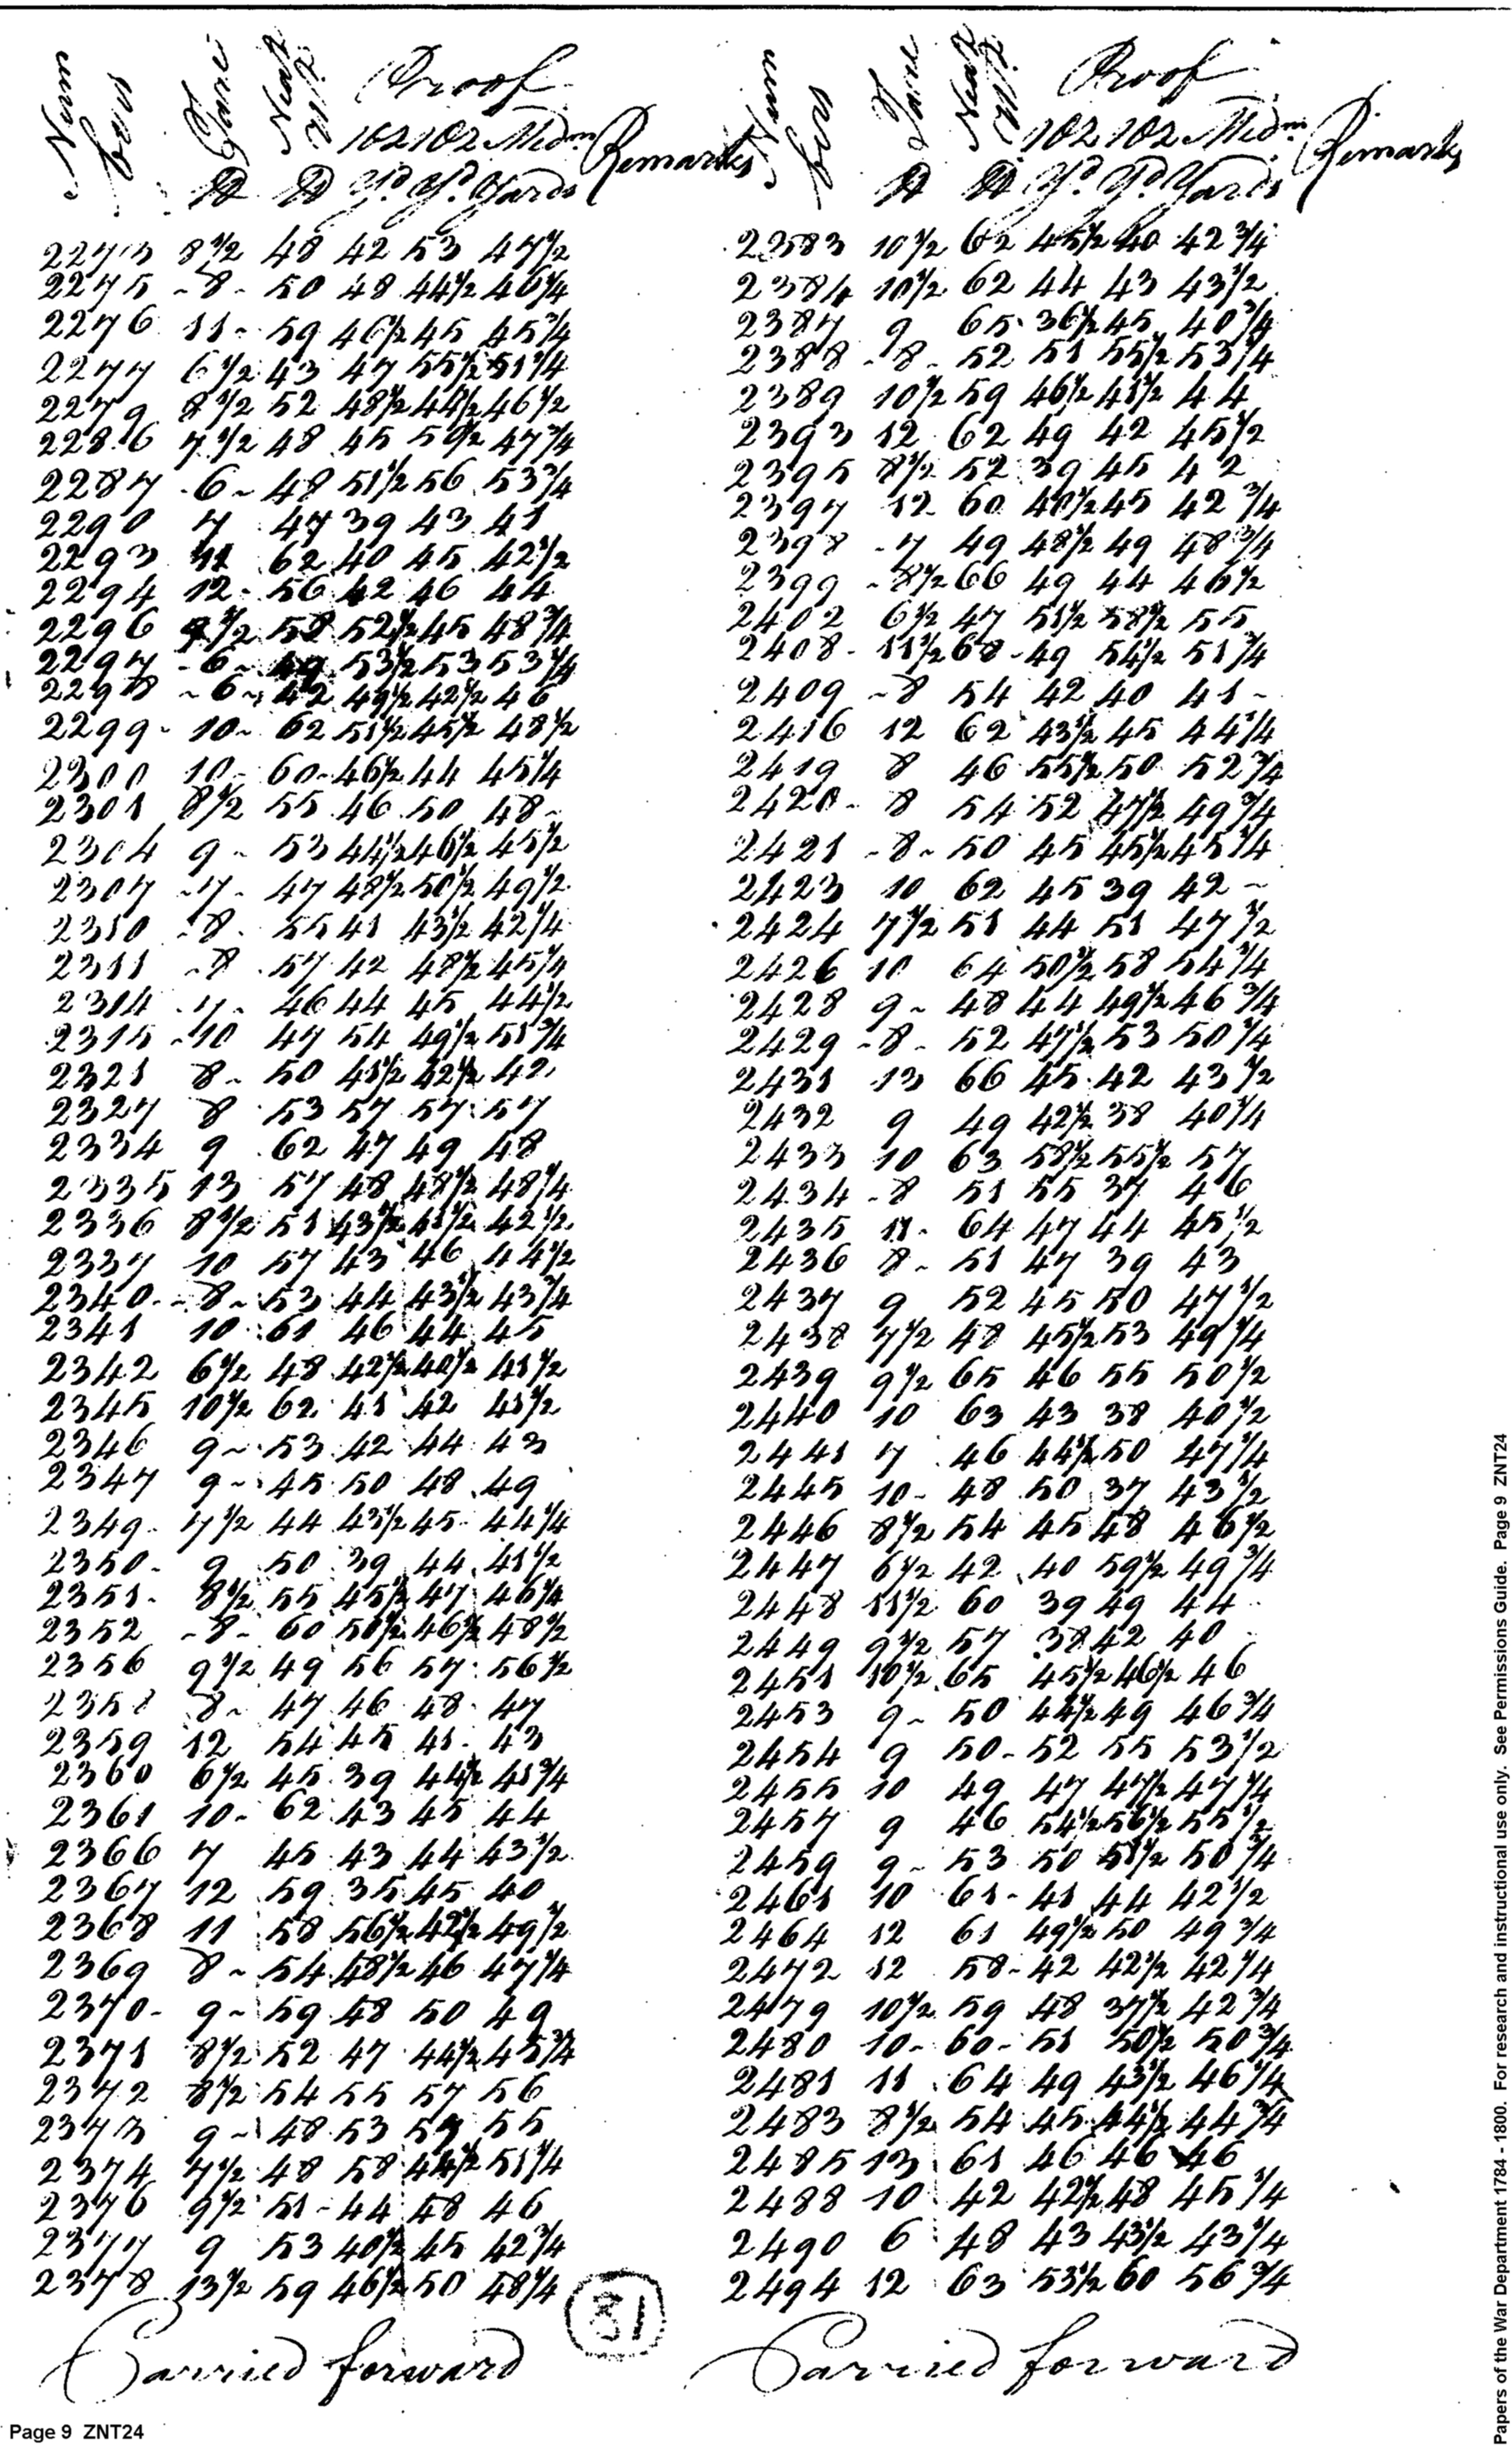 Num bers Tare Neat Wt. Proof Remarks
102 102 Medm
℔ ℔ Yd. Yd. Yards
2273 8 1/2 48 42 53 47 1/2
2275 - 8 - 50 48 44 1/2 46 1/4
2276 11 - 59 46 1/2 45 45 3/4
2277 6 1/2 43 47 55 1/2 51 1/4
2279 8 1/2 52 48 1/2 44 1/2 46 1/2
2286 7 1/2 48 45 50 1/2 47 3/4
2287 - 6 ~ 48 51 1/2 56 53 3/4
2290 7 47 39 43 41
2293 11 62 40 45 42 1/2
2294 12 - 56 42 46 44
2296 1/2 58 52 1/2 45 48 3/4
2297 - 6 ~ 49 53 1/2 53 53 1/4
2298 ~ 6 ~ 42 49 1/2 42 1/2 46
2299 - 10 ~ 62 51 1/2 45 1/2 48 1/2
2300 10 - 60 - 46 1/2 44 45 1/4
2301 8 1/2 55 46 50 48 ~
2304 9 ~ 53 44 1/2 46 1/2 45 1/2
2307 ~ 7 - 47 48 1/2 50 1/2 49 1/2
2310 - 8 - 55 41 43 1/2 42 1/4
2311 - 8 57 42 48 1/2 45 1/4
2314 - 7 - 46 44 45 44 1/2
2315 - 10 47 54 49 1/2 51 3/4
2321 8 - 50 41 1/2 42 1/2 42
2327 8 53 57 57 57
2334 9 62 47 49 48
2335 13 57 48 48 1/2 48 1/4
2336 8 1/2 51 43 1/2 41 1/2 42 1/2
2337 10 57 43 46 44 1/2
2340 - - 8 ~ 53 44 43 1/2 43 3/4
2341 10 61 46 44 45
2342 6 1/2 48 42 1/2 40 1/2 41 1/2
2345 10 1/2 62 41 42 41 1/2
2346 9 ~ 53 42 44 43
2347 9 ~ 45 50 48 49
2349 - 7 1/2 44 43 1/2 45 44 1/4
2350 - 9 50 39 44 41 1/2
2351 - 8 1/2 55 45 1/2 47 46 1/4
2352 - 8 - 60 50 1/2 46 1/2 48 1/2
2356 9 1/2 49 56 57 56 1/2
2358 8 ~ 47 46 48 47
2359 12 54 45 41 - 43
2360 6 1/2 45 39 44 1/2 41 3/4
2361 10 - 62 43 45 44
2366 7 45 43 44 43 1/2
2367 12 59 35 45 40
2368 11 58 56 1/2 42 1/2 49 1/2
2369 8 ~ 54 48 1/2 46 47 1/4
2370 - 9 ~ 59 48 50 49
2371 8 1/2 52 47 44 1/2 45 3/4
2372 8 1/2 54 55 57 56
2373 9 ~ 48 53 57 55
2374 7 1/2 48 58 44 1/2 51 1/4
2376 9 1/2 51 - 44 48 46
2377 9 53 40 1/2 45 42 3/4
2378 13 1/2 59 46 1/2 50 48 1/4
Carried forward
81
Num bers Tare Neat Wt. Proof Remarks
102 102 Medm
℔ ℔ Yd. Yd. Yards
2383 10 1/2 62 45 1/2 40 42 3/4
2384 10 1/2 62 44 43 43 1/2
2387 9 65 36 1/2 45 40 3/4
2388 - 8 - 52 51 55 1/2 53 1/4
2389 10 1/2 59 46 1/2 41 1/2 44
2393 12 62 49 42 45 1/2
2395 8 1/2 52 39 45 42
2397 12 60 40 1/2 45 42 3/4
2398 - 7 49 48 1/2 49 48 3/4
2399 - 8 1/2 66 49 44 46 1/2
2402 6 1/2 47 51 1/2 58 1/2 55
2408 - 11 1/2 68 - 49 54 1/2 51 3/4
2409 ~ 8 54 42 40 41 ~
2416 12 62 43 1/2 45 44 1/4
2419 8 46 55 1/2 50 52 3/4
2420 - 8 54 52 47 1/2 49 3/4
2421 - 8 ~ 50 45 45 1/2 45 1/4
2423 10 62 45 39 42 ~
2424 7 1/2 51 44 51 47 1/2
2426 10 64 50 1/2 58 54 1/4
2428 9 ~ 48 44 49 1/2 46 3/4
2429 - 8 - 52 47 1/2 53 50 1/4
2431 13 66 45 42 43 1/2
2432 9 49 42 1/2 38 40 1/4
2433 10 63 58 1/2 55 1/2 57
2434 - 8 51 55 37 46
2435 11 - 64 47 44 45 1/2
2436 8 - 51 47 39 43
2437 9 52 45 50 47 1/2
2438 7 1/2 48 45 1/2 53 49 1/4
2439 9 1/2 65 46 55 50 1/2
2440 10 63 43 38 40 1/2
2441 7 46 44 1/2 50 47 1/4
2445 10 - 48 50 37 43 1/2
2446 8 1/2 54 45 48 46 1/2
2447 6 1/2 42 40 59 1/2 49 3/4
2448 11 1/2 60 39 49 44
2449 9 1/2 57 38 42 40
2451 10 1/2 65 45 1/2 46 1/2 46
2453 9 ~ 50 44 1/2 49 46 3/4
2454 9 50 - 52 55 53 1/2
2455 10 49 47 47 1/2 47 1/4
2457 9 46 54 1/2 56 1/2 55 1/2
2459 9 ~ 53 50 51 1/2 50 3/4
2461 10 61 - 41 44 42 1/2
2464 12 61 49 1/2 50 49 3/4
2472 12 58 - 42 42 1/2 42 1/4
2479 10 1/2 59 48 37 1/2 42 3/4
2480 10 - 60 - 51 50 1/2 50 3/4
2481 11 64 49 43 1/2 46 1/4
2483 8 1/2 54 45 44 1/2 44 3/4
2485 13 61 46 46 46
2488 10 42 42 1/2 48 45 1/4
2490 6 48 43 43 1/2 43 1/4
2494 12 63 53 1/2 60 56 3/4
Carried forward
Page 9 ZNT24
Papers of the War Department 1784 - 1800. For research and instructional use only. See Permissions Guide. Page 9 ZNT24